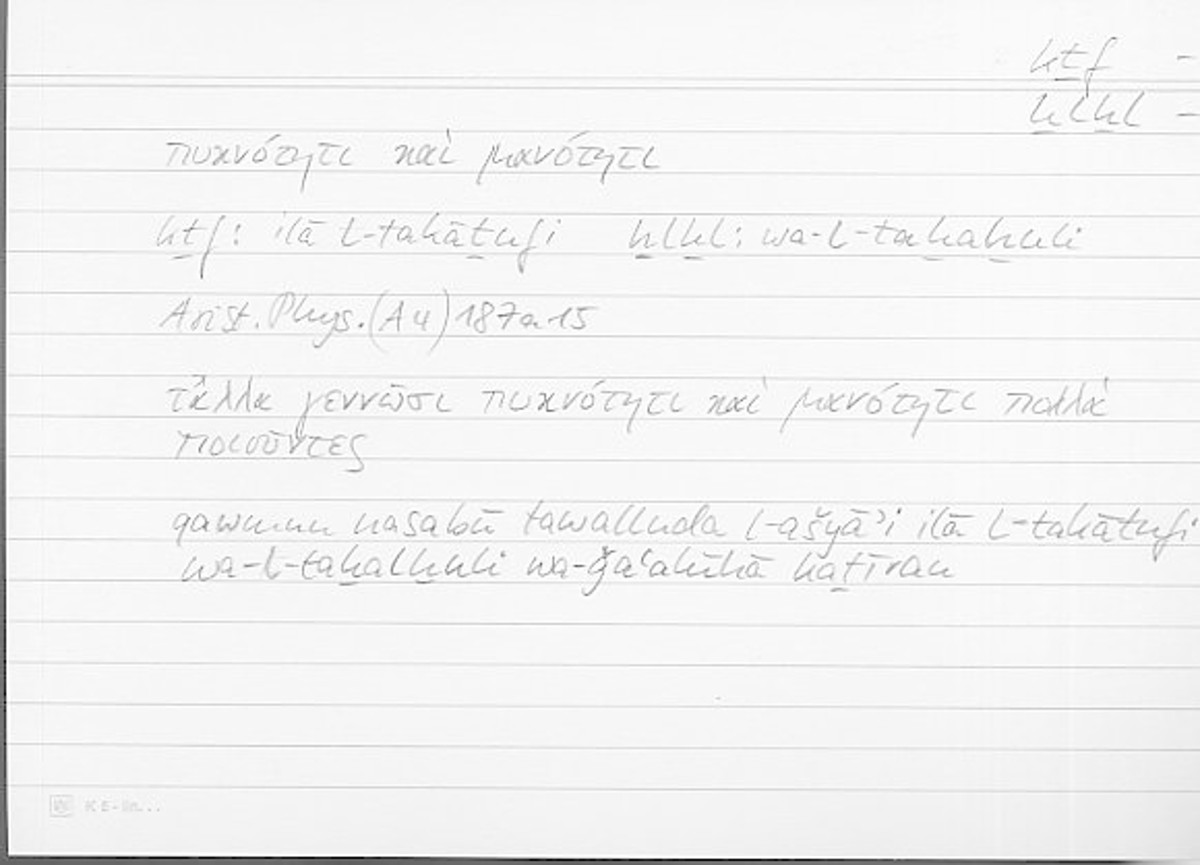 kṯf -
ḫlḫl -
πυκνότητι καὶ μανότητι
kṯf: ilā l-takāṯufi ḫlḫl: wa-l-taḫaḫuli
Arist. Phys. (A 4) 187a15
τἆλλα γεννῶσι πυκνότητι καὶ μανότητι πολλὰ
ποιοῦντες
qawmun nasabū tawalluda l-ašyāʾi ilā l-takāṯufi
wa-l-taḫalḫuli wa-ǧaʿalūhā kaṯīran